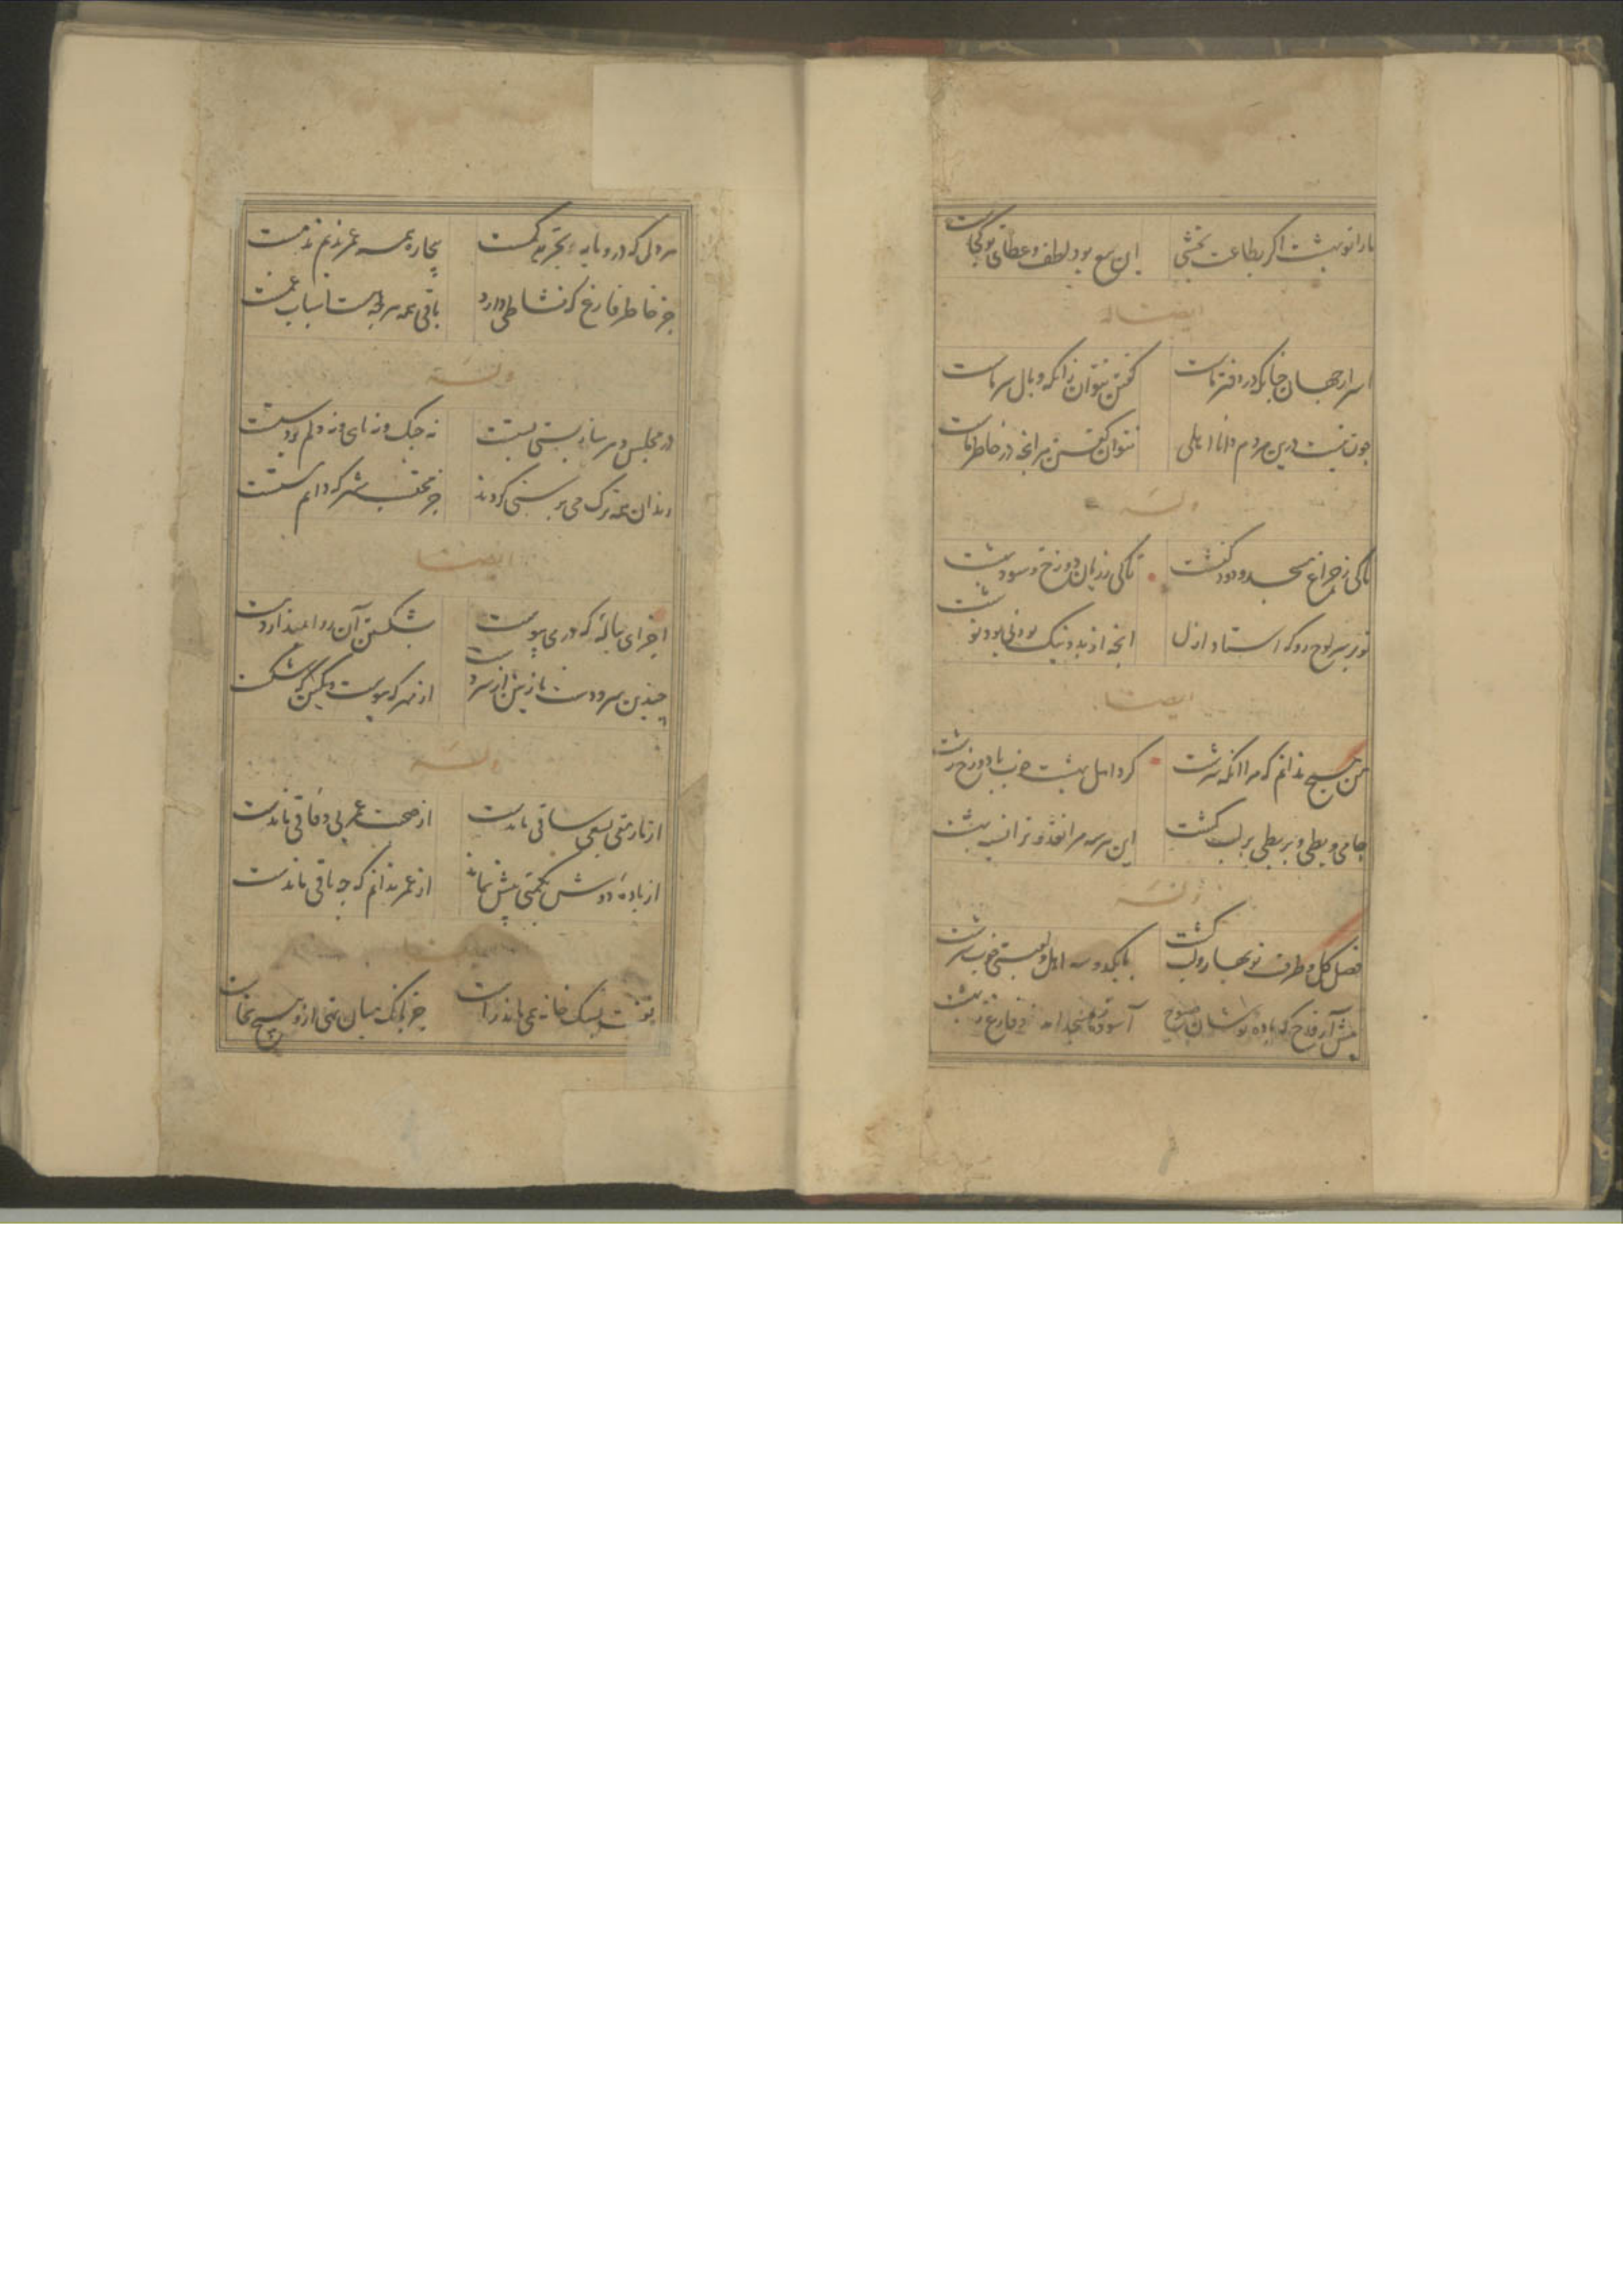 ما را تو بهشت اگر بطاعت بخشی این بیع بود لطف و عطای تو کجاست
ایضا له
اسرار جهان چنانکه در دفتر ماست گفتن نتوان زانکه وبال سر ماست
چون نیست درین مردم دانا اهلی نتوان گفتن هر آنچه در خاطر ماست
وله
تا کی ز چراغ مسجد و دود کنشت تا کی ز زیان دوزخ و سود بهشت
رو بر سر لوح که استاد ازل آنچه از بد و نیک بودنی بود نوشت
ایضا
من هیچ ندانم که مرا آنکه سرشت کرد اهل بهشت خوب یا دوزخ زشت
جامی و بطی و بربطی بر لب کشت این هر سه مرا نقد و ترا نسیه بهشت
وله
فصل گل و طرف نوبهار و لب کشت با یکدو سه اهل و لعبتی خوب سرشت
پیش آر قدح که باده نوشان صبوح آسوده ز مسجدند و فارغ ز بهشت
هر دل که درو مایه تجرید کمست بیچاره همه عمر ندیم ندمست
جز خاطر فارغ که نشاطی دارد باقی همه هر چه هست اسباب غمست
وله
در مجلس دهر ساز مستی پستست نه چنگ و نه نای و نه دلم بر دستست
رندان همه ترک می پرستی کردند جز محتسب شهر که دایم مستست
ایضا
اجزای پیاله که در می پیوست بشکستن آن روا نمیدارد مست
چندین سر و دست نازنین از سر دست از مهر که پیوست و بکین که شکست
وله
از نار متقی بسعی ساقی ماندست از صحبت عمر بی وفاقی ماندست
از باده دوش یکمنی بیش نماند از عمر ندانم که چه باقی ماندست
ایضا
جز بانگ میان تهی ازو هیچ نخاست